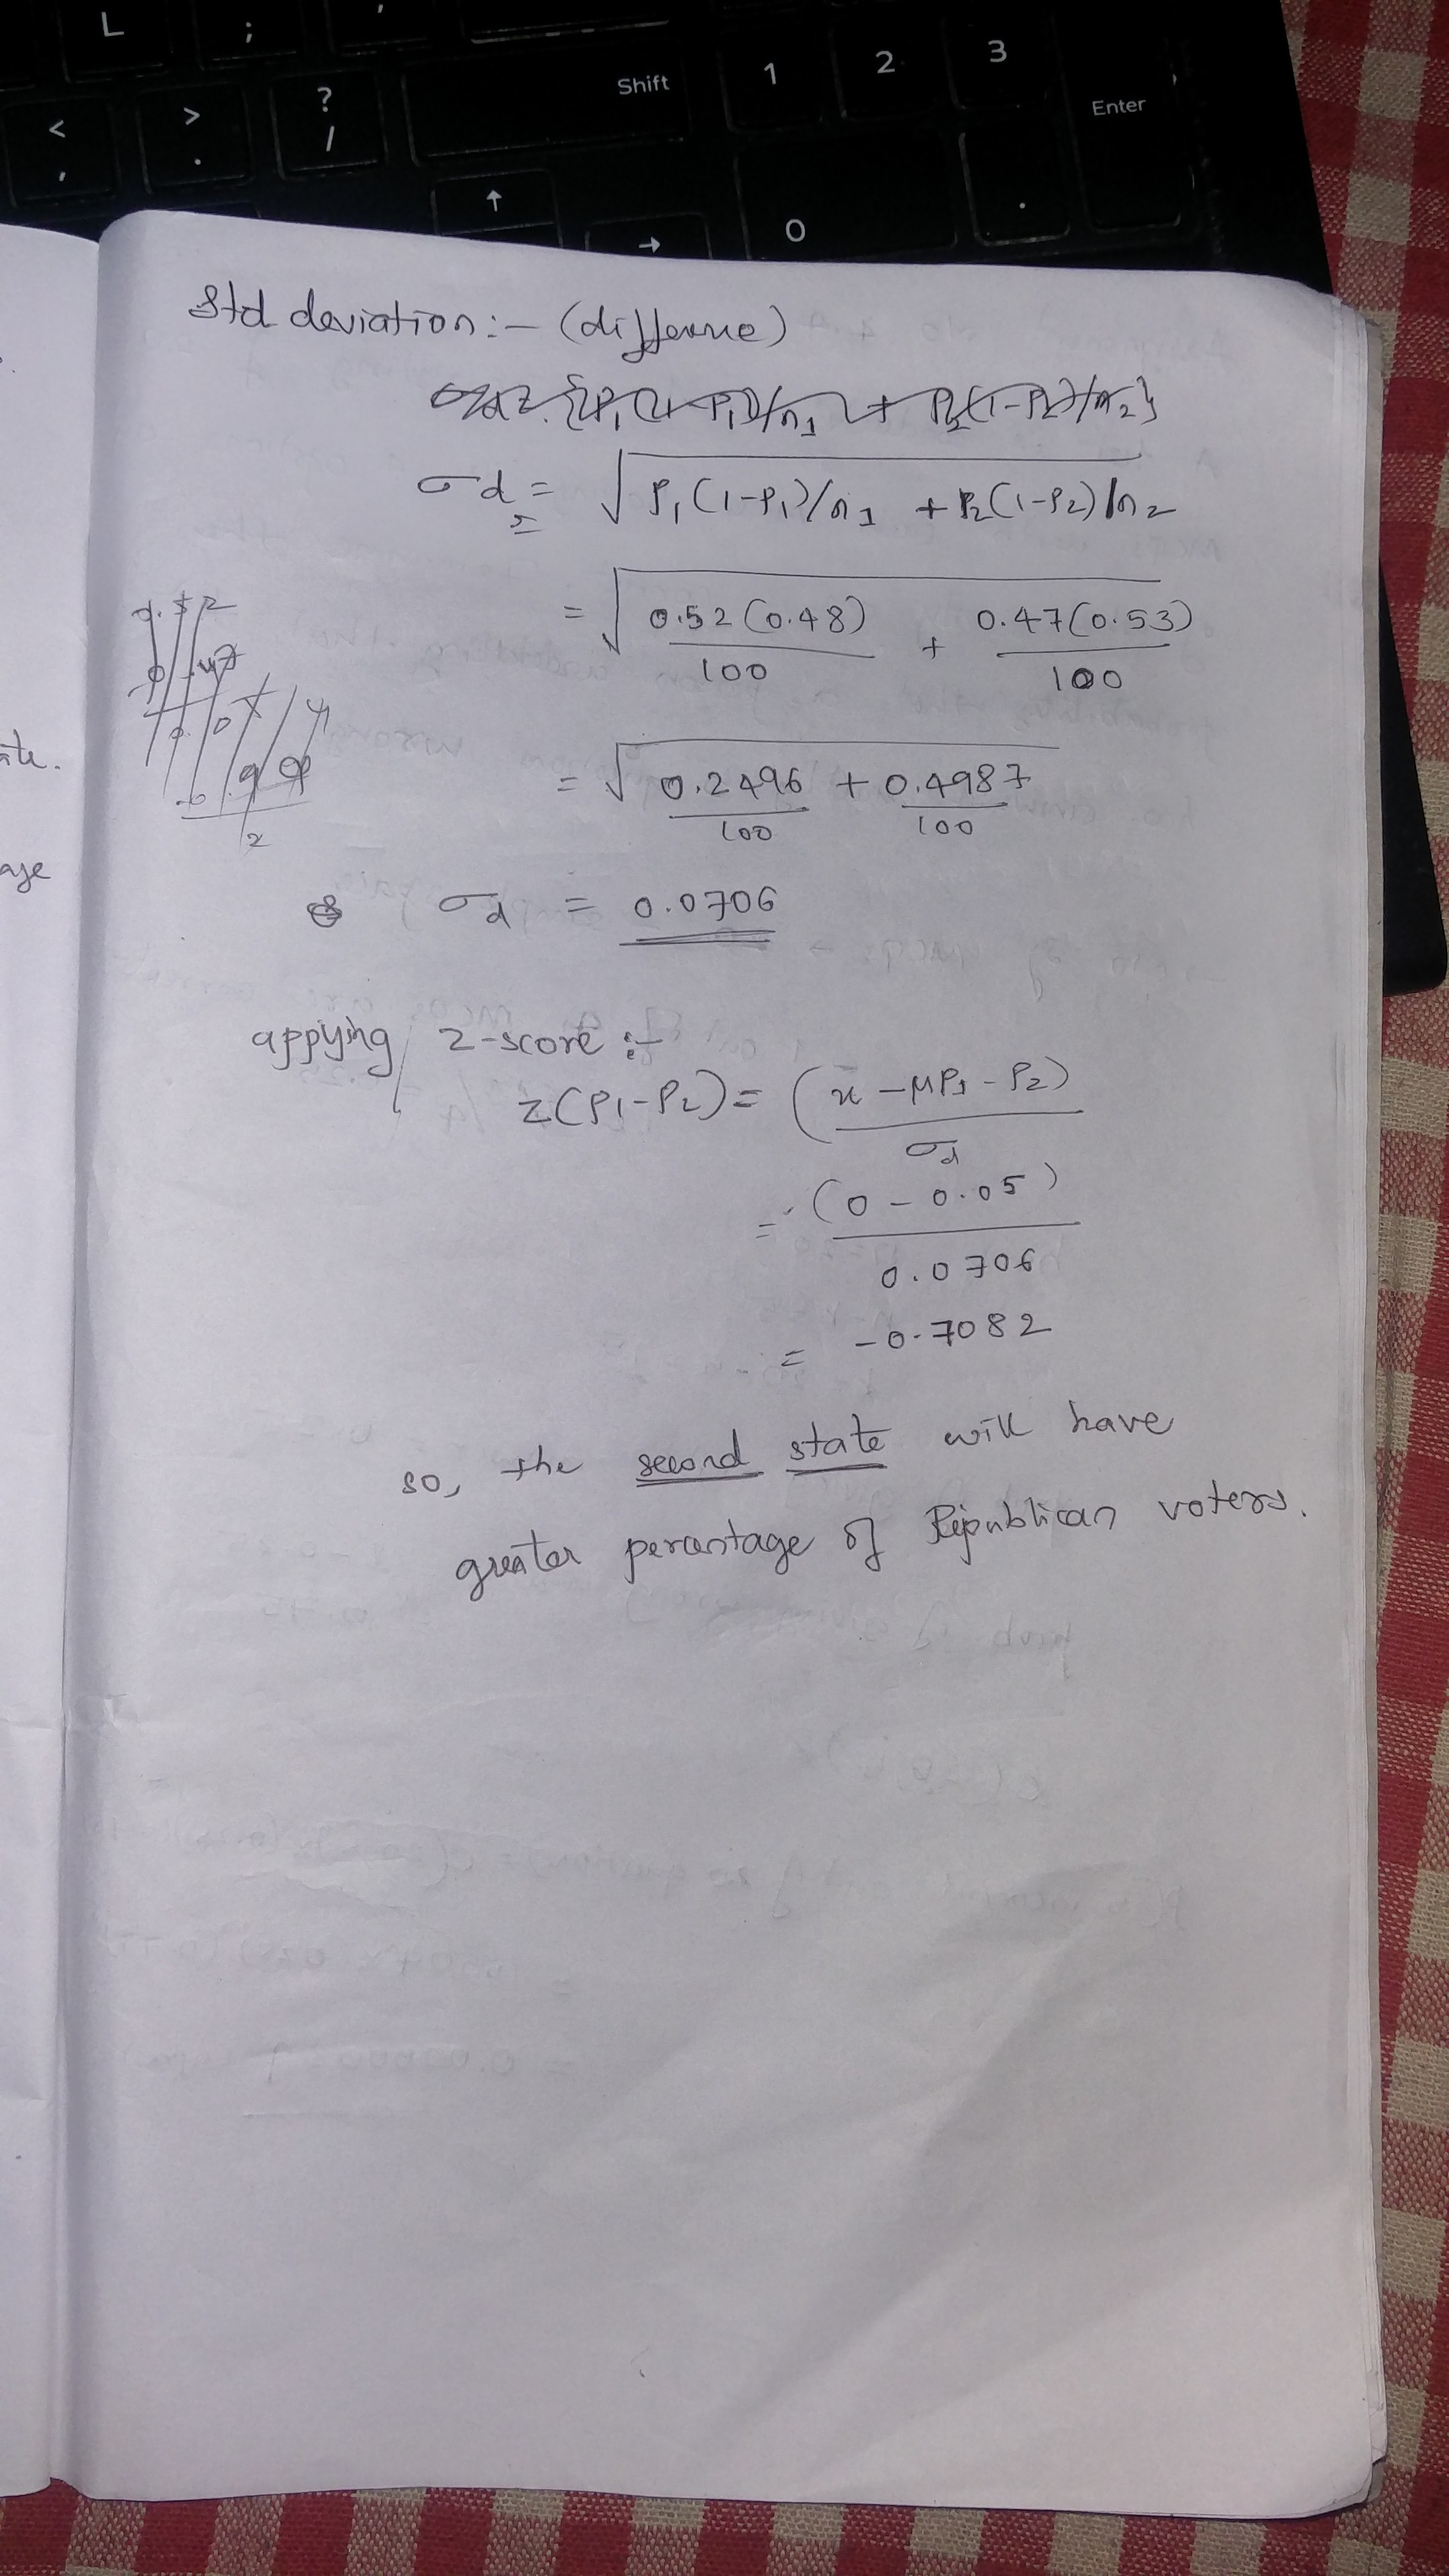 L ; '
< , > . ? / Shift 1 2 3 Enter
↑ 0 .
→
Std deviation:- (differne)
σd = √ P₁(1-P₁)/n₁ + P₂(1-P₂)/n₂
= √ 0.52(0.48)/100 + 0.47(0.53)/100
= √ 0.2496/100 + 0.4987/100
σd = 0.0706
appying z-score :-
z(P₁-P₂) = (x - μP₁ - P₂)/σd
= (0 - 0.05)/0.0706
= -0.7082
so, the second state will have
greater percentage of Republican voters.
ate.
age